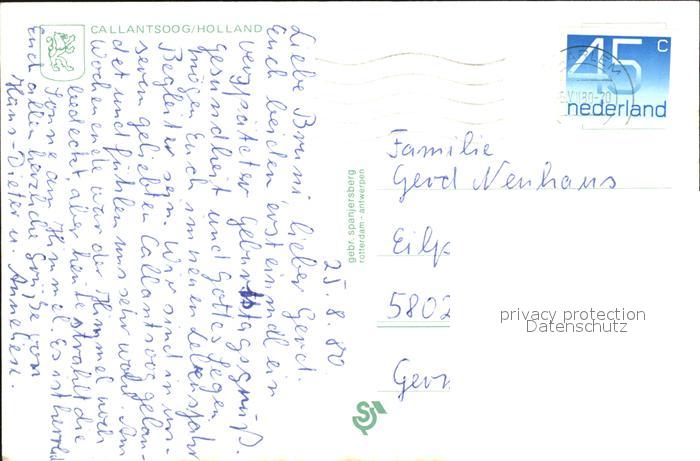 CALLANTSOOG/HOLLAND
25.8.80
Liebe Bruni, lieber Gerd.
Euch beiden erst einmal ein
verspäteter Geburtstagsgruß.
Gesundheit und Gottes Segen
mögen Euch im neuen Lebensjahr
Begleiter sein. Wir sind in un-
serem geliebten Callantsoog gelan-
det und fühlen uns sehr wohl. Am
Wochenende war der Himmel noch
bedeckt, aber heute strahlt die
Sonne am Himmel. Es ist herrlich
Euch allen herzliche Grüße von
Hans-Dieter u. Anneliese.
gebr. spanjersberg
rotterdam - antwerpen
45 c
nederland
Familie
Gerd Neuhaus
Eilp
5802
privacy protection
Datenschutz